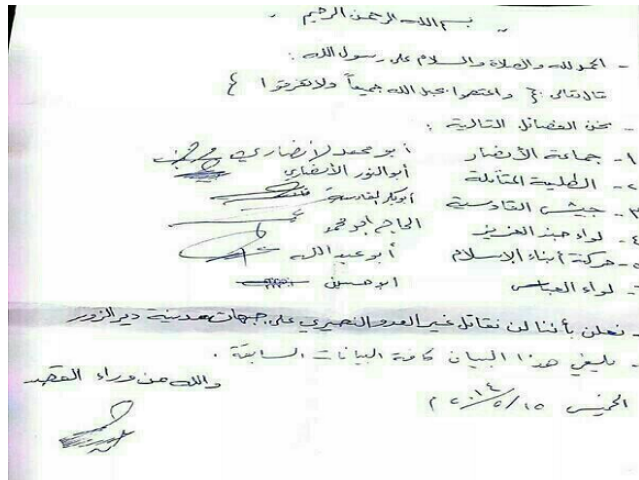 بسم الله الرحمن الرحيم
- الحمد لله والصلاة والسلام على رسول الله :
قال تعالى : { واعتصموا بحبل الله جميعاً ولا تفرقوا }
- نحن الفصائل التالية :
١- جماعة الأنصار أبو محمد الأنصاري
٢- الطلية المقاتلة أبو النور الأنصاري
٣- جيش القادسية أبو بكر القادسية
٤- لواء الحاج أبو محمد
٥- حركة أبناء الإسلام أبو عبد الله
٦- لواء العباس أبو حسين
- نعلن بأننا لن نقاتل غير العدو النصيري على جبهات مدينة دير الزور
- يلغي هذا البيان كافة البيانات السابقة .
والله من وراء القصد
الخميس ١٥/٥/٢٠١٤ م